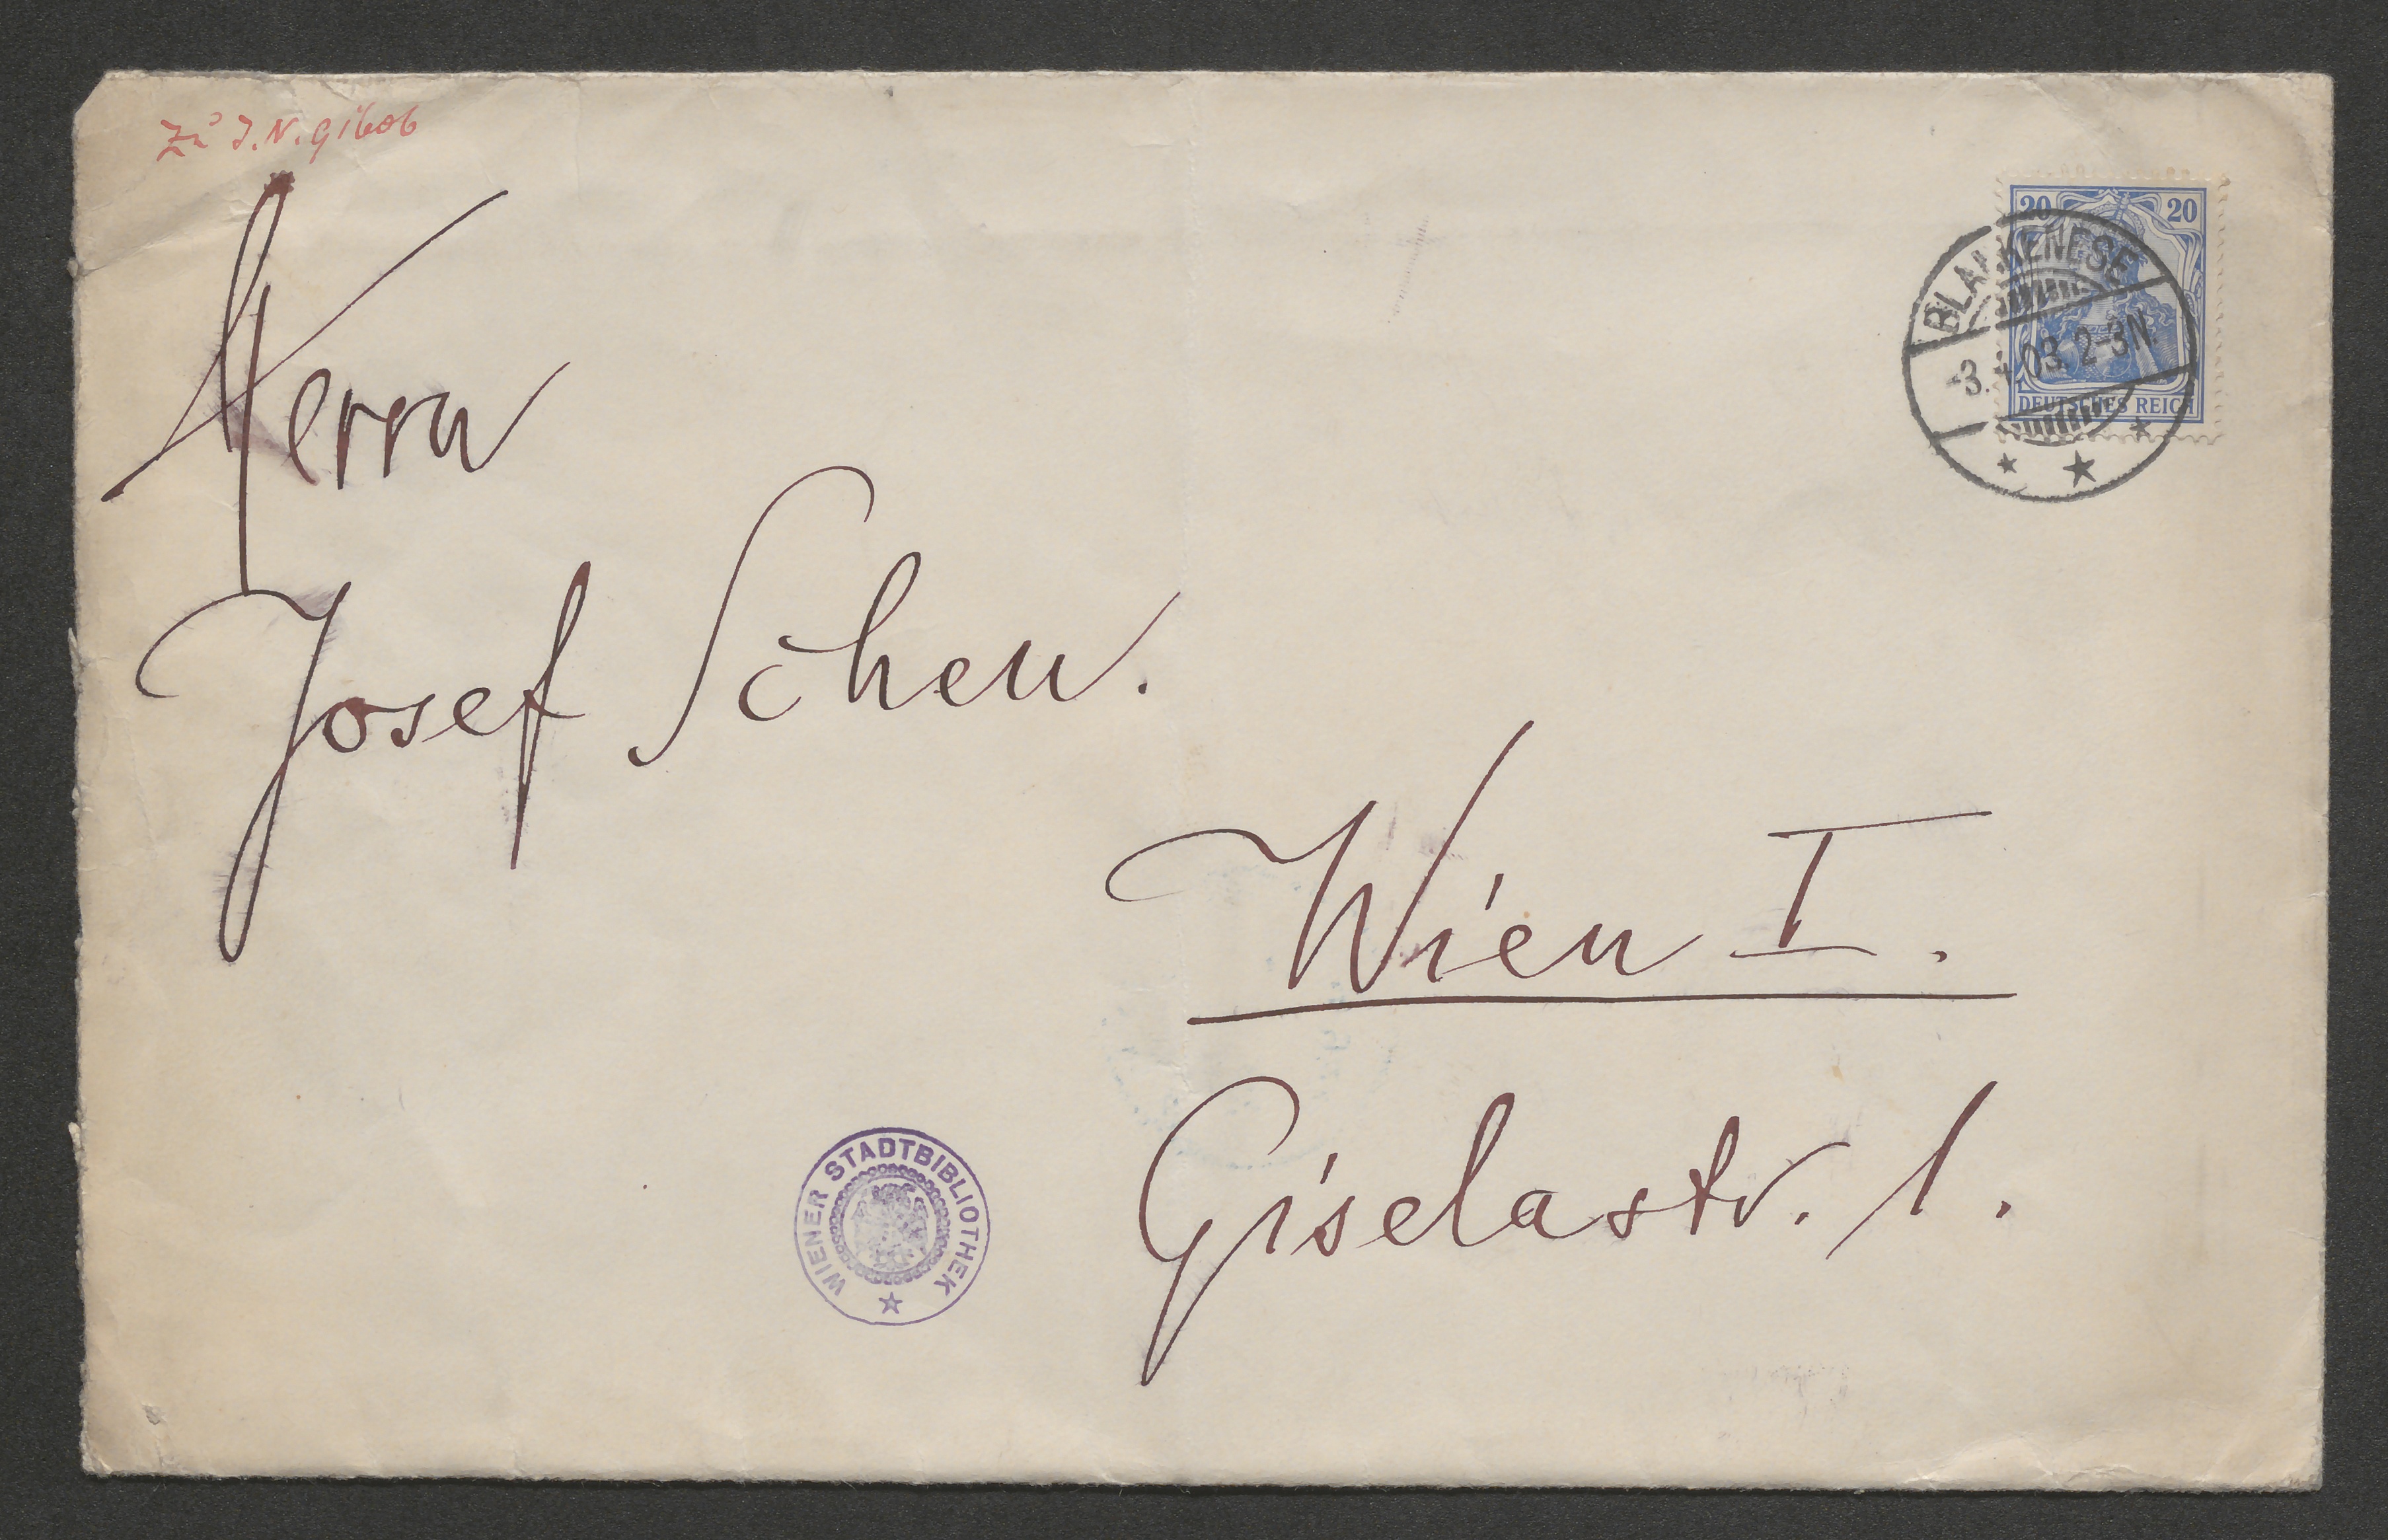 Zu I.N. 91606
20 20
BLANKENESE
-3.4.03. 2-3N.
DEUTSCHES REICH
Herrn
Josef Scheu.
Wien I.
Giselastr. 1.
WIENER STADTBIBLIOTHEK